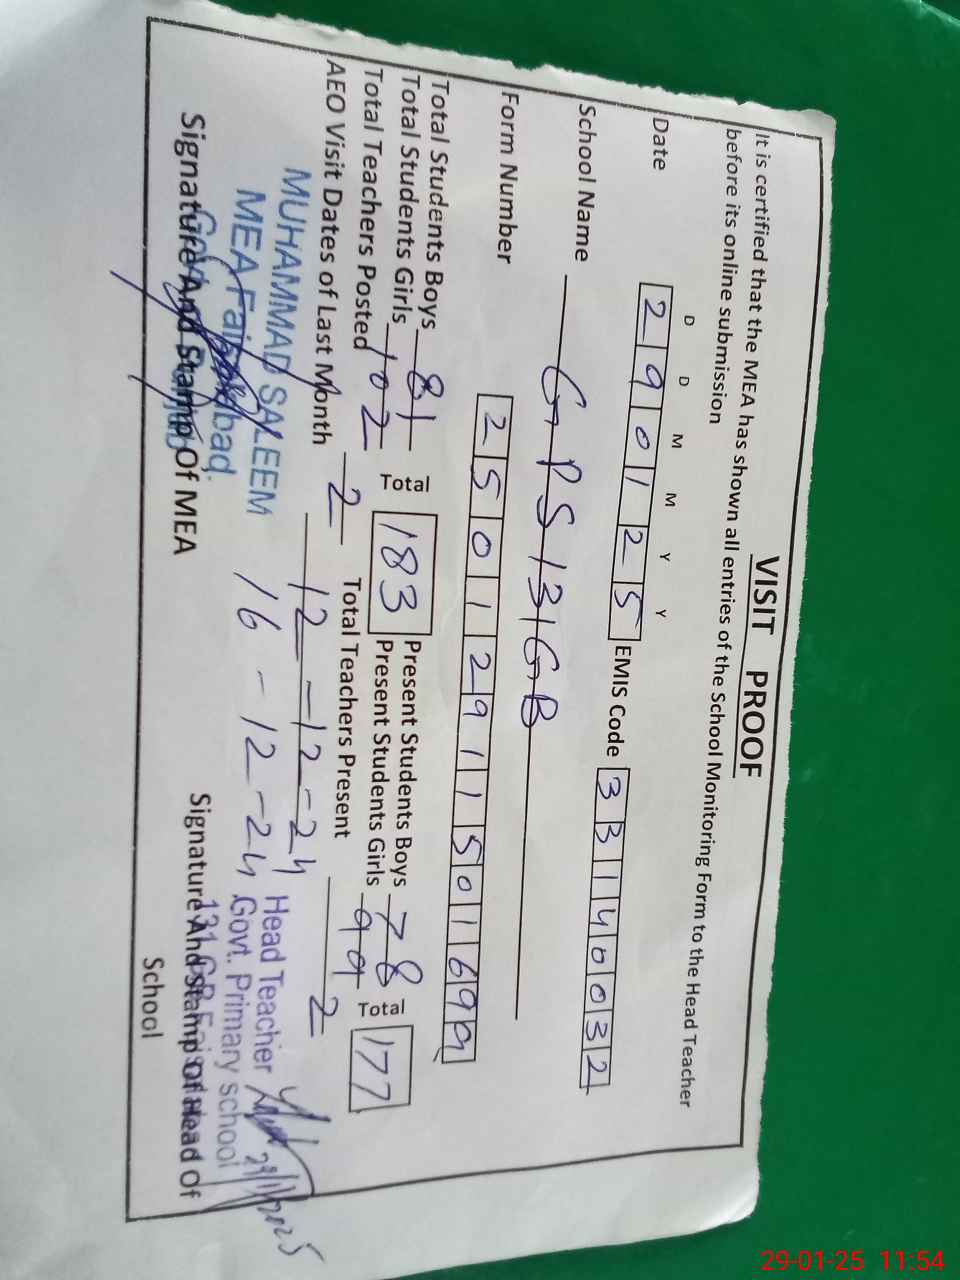 VISIT PROOF
It is certified that the MEA has shown all entries of the School Monitoring Form to the Head Teacher
before its online submission
D D M M Y Y
Date 290125 EMIS Code 33140032
School Name GPS 131GB
Form Number 25012911501699
Total Students Boys 81 Total 183 Present Students Boys 78 Total 177
Total Students Girls 102 Present Students Girls 99
Total Teachers Posted 2 Total Teachers Present 2
AEO Visit Dates of Last Month 12-12-24
16-12-24
MUHAMMAD SALEEM
MEA Faisalabad.
Signature And Stamp Of MEA
Head Teacher
Govt. Primary school
131 GB
29/1/2025
Signature And Stamp Of Head Of
School
29-01-25 11:54